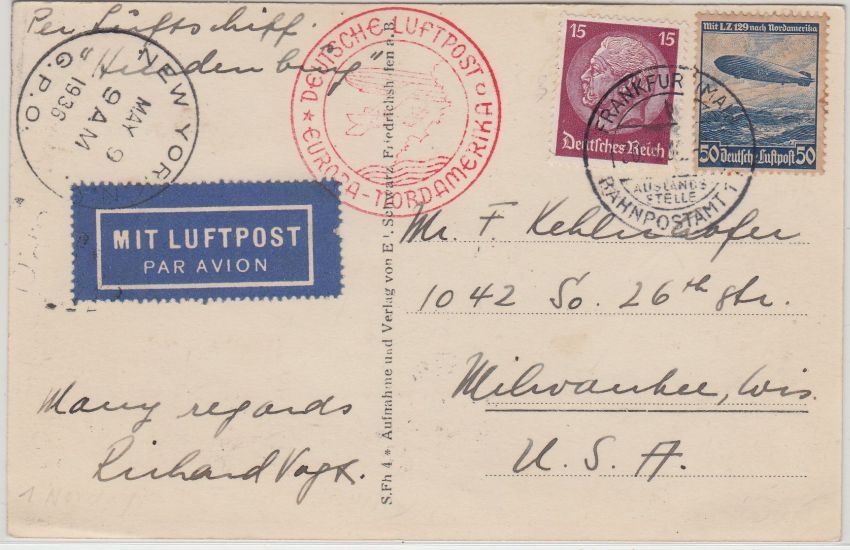 Per Luftschiff
"Hindenburg"
NEW YORK,
MAY 9
9 AM
1936
G.P.O.
* DEUTSCHE LUFTPOST *
EUROPA-NORDAMERIKA
15 15
Deutsches Reich
Mit L.Z. 129 nach Nordamerika
50 deutsche Luftpost 50
FRANKFURT (MAIN)
AUSLANDS
STELLE
BAHNPOSTAMT 1
MIT LUFTPOST
PAR AVION
S.Fh 4 * Aufnahme und Verlag von E. Schwarz, Friedrichshafen a. B.
Mr. F Kehlenhofer
1042 So. 26th Str.
Milwaukee, Wis.
U. S. A.
Many regards
Richard Vogt.